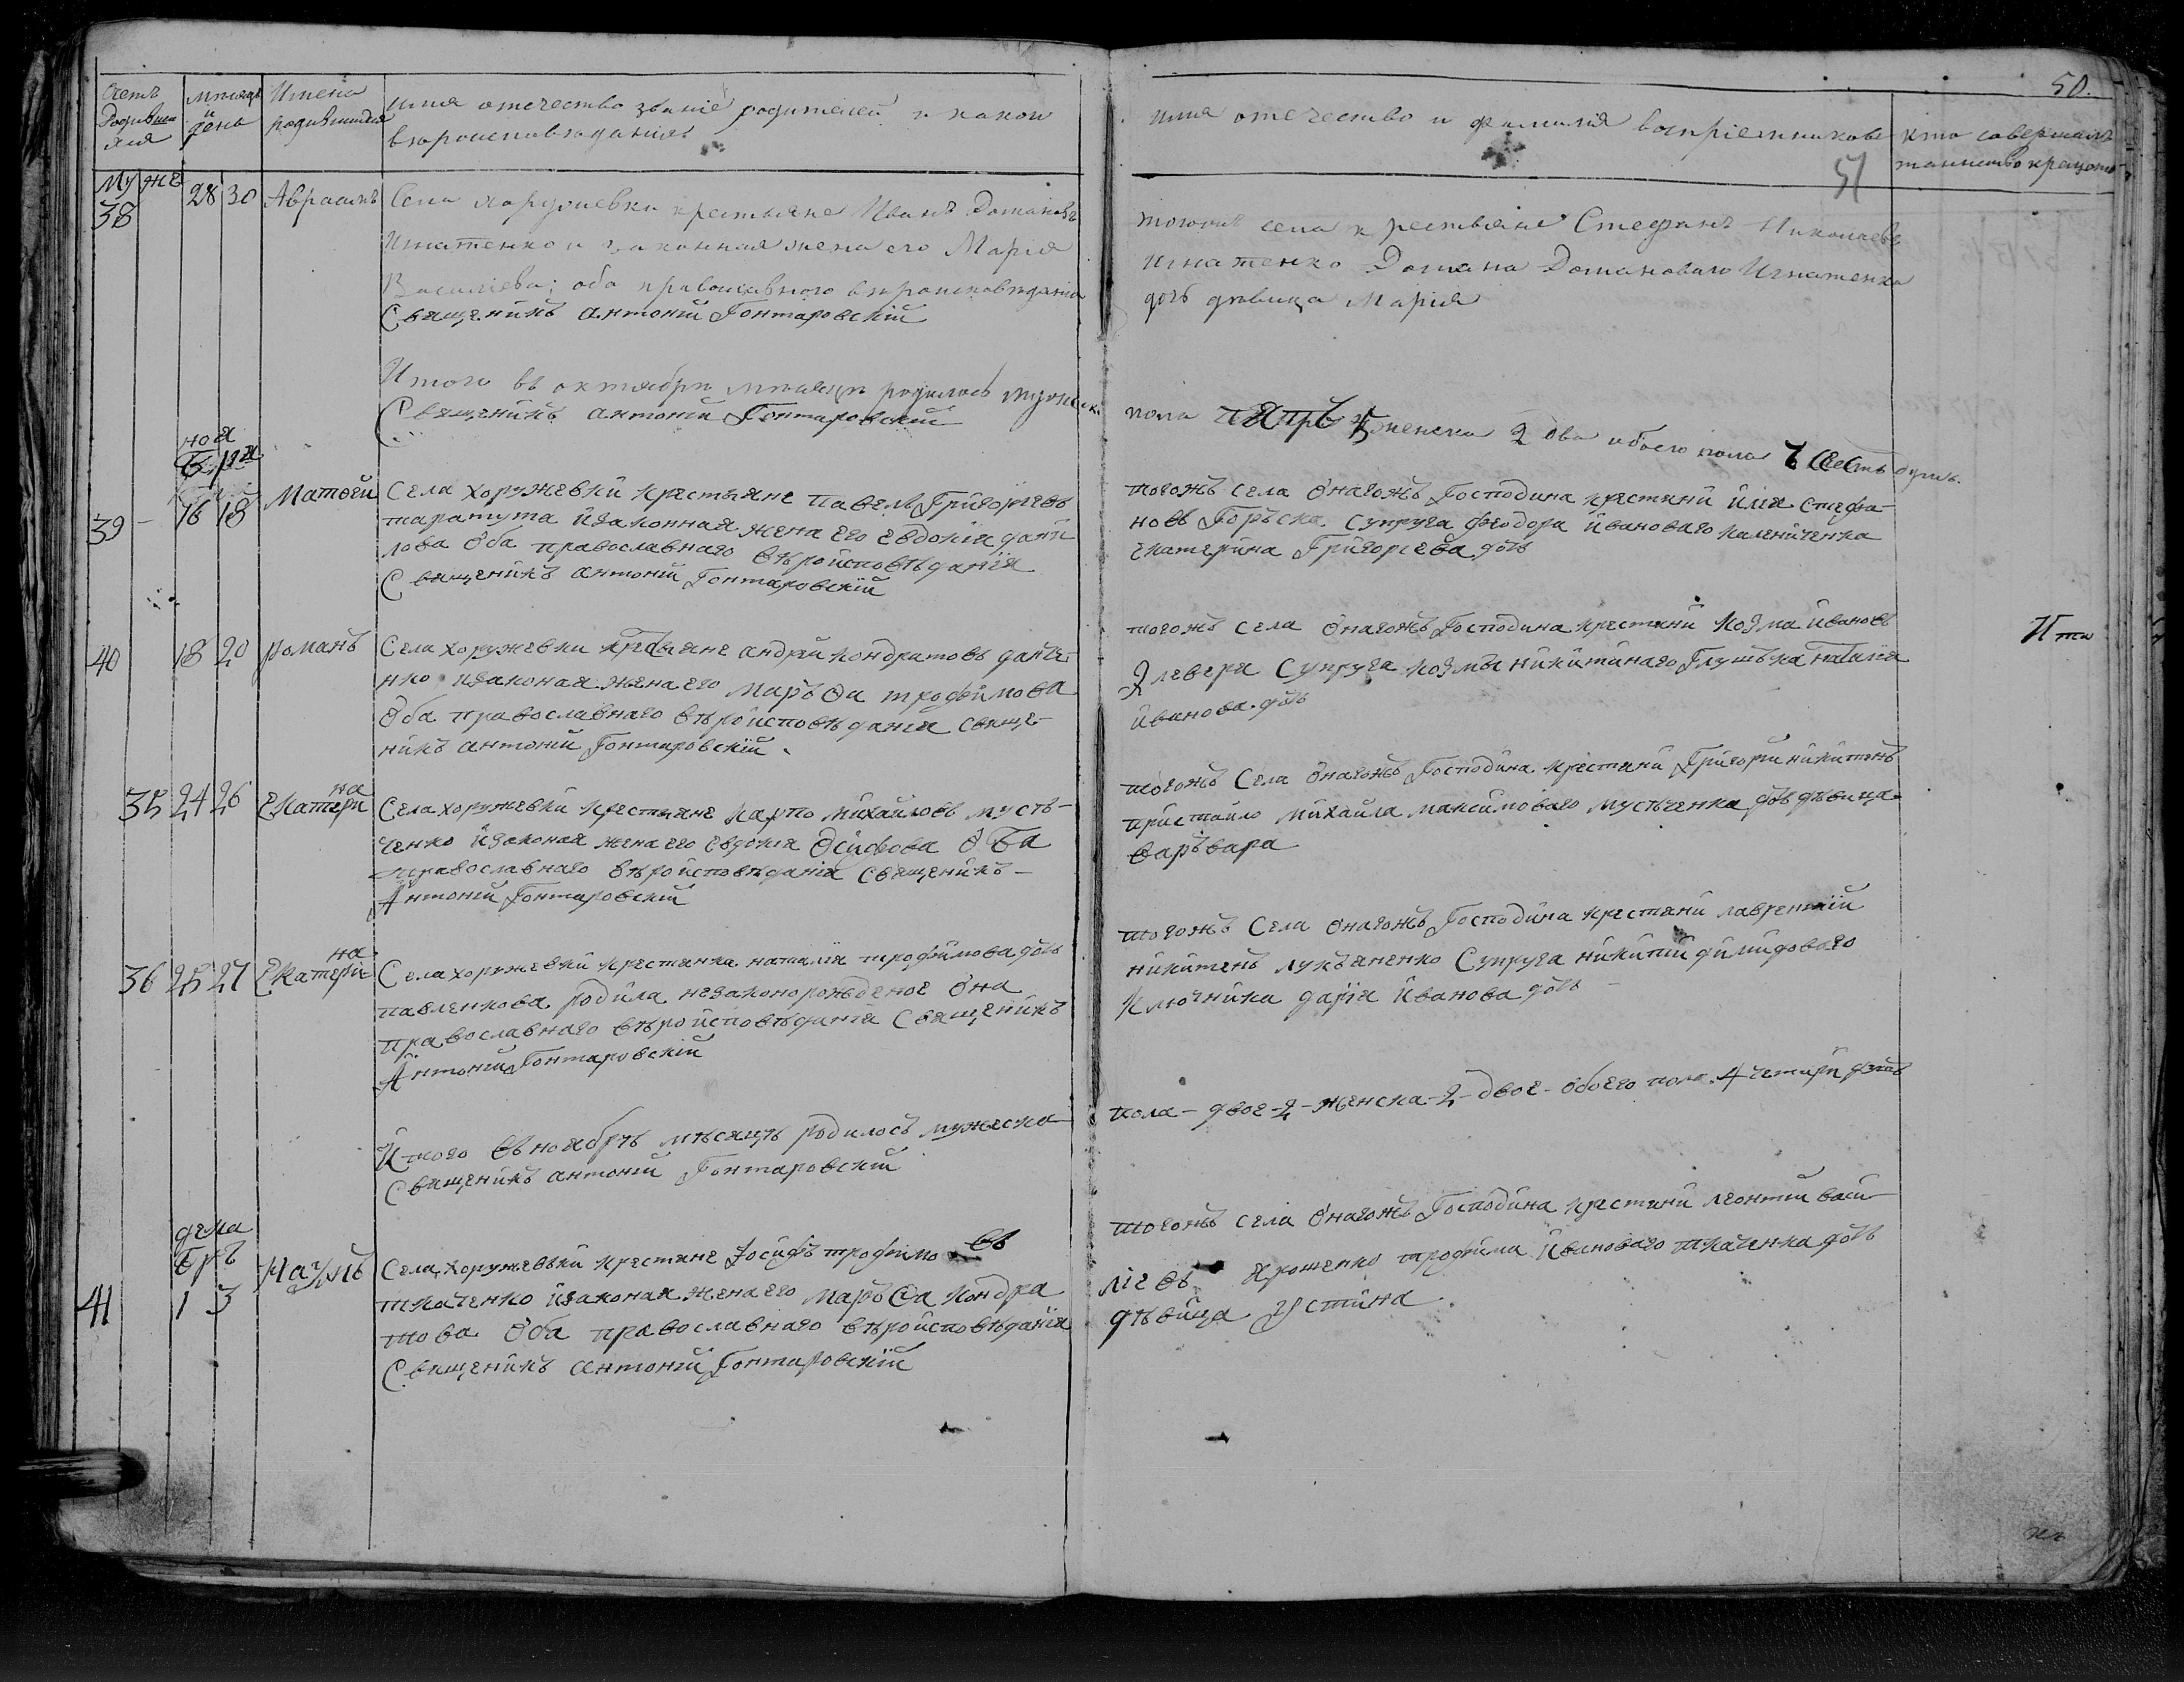 50.
51
Счетъ родившихся
мѣсяцъ и день
Имена родившихся
имя отечество званіе родителей и какои
вѣроисповѣданія
имя отечество и фамилія воспріемниковъ
кто совершалъ
таинство крещенія
Муже
38 28 30 Авраамъ
Села хоружевки крестьяне Иванъ Домановъ
Игнатенко и законная жена его Марія
Василіева; оба православного вѣроисповѣданія
Священикъ антоній Гонтаровскій
тогожъ села крестьяне Стефанъ Николаевъ
Игнатенко Домана Домановаго Игнатенка
дочъ дѣвица Марія
Итого въ октябрѣ мѣсяцѣ родилось мужеска
Священикъ антоній Гонтаровскій
пола женска 2 два обоего пола душъ.
ноя
бря
39 16 18 Матѳей
Села хоружевки крестьяне павелъ Григоріевъ
таратута изаконная жена его Евдокія дани
лова оба православнаго вѣроисповѣданія
Священикъ антоній Гонтаровскій
тогожъ села онагожъ Господина крестяни илія стефа-
новъ Супруга феодора ивановаго каленіченка
екатерина Григоріева дочь
40 18 20 романъ
Села хоружевки андрей кондратовъ
нко изаконая жена его маръѳа трофимова
Оба православнаго вѣроисповѣданія свяще-
никъ антоній Гонтаровскій
тогожъ села онагожъ Господина крестяни козма ивановъ
Супруга козмы никитинаго Глушъка наталія
иванова дочь
Ито
35 24 26 Екатери
на
Села хоружевки крестьяне карпо михайловъ мусть-
ченко изаконая жена его евдокія Осифова Оба
православнаго вѣроисповѣданія священикъ-
Антоній Гонтаровскій
тогожъ Села онагожъ Господина крестяни Григорій никитинъ
пристайло михайла максимоваго мустьченка дочь дѣвица
варъвара
36 25 27 Екатери
на
Села хоружевки крестянка наталія трофимова дочь
павленкова родила незаконорожъденое Она
православнаго вѣроисповѣданія Священикъ
Антоній Гонтаровскій
тогожъ Села онагожъ Господина крестяни лаврентій
никитинъ лукъяненко Супруга никитій димидоваго
ключника дарія иванова дочь
Итого въ ноябрѣ мѣсяцѣ родилосъ мужеска
Священикъ антоній Гонтаровскій
пола - двое-2-женска-2-двое-обоего пола 4 четири
дека
бръ
41 1 3 Наумъ
Села хоружевки крестяне Іосифъ трофимовъ
ткаченко изаконая жена его маръѳа кондра
това Оба православнаго вѣроисповѣданія
Священикъ антоній Гонтаровскій
тогожъ села онагожъ Господина крестяни леонтій васи-
ліевъ Ярошенко трофима ивановаго ткаченка дочь
дѣвица устина